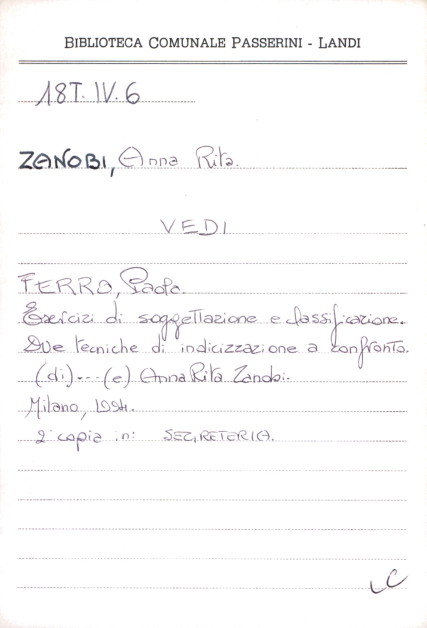 BIBLIOTECA COMUNALE PASSERINI - LANDI
18T. IV. 6
ZANOBI, Anna Rita.
VEDI
FERRO, Paola.
Esercizi di soggettazione e classificazione.
Due tecniche di indicizzazione a confronto.
(di)---(e) Anna Rita Zanobi.
Milano, 1994.
2ª copia in: SEGRETERIA.